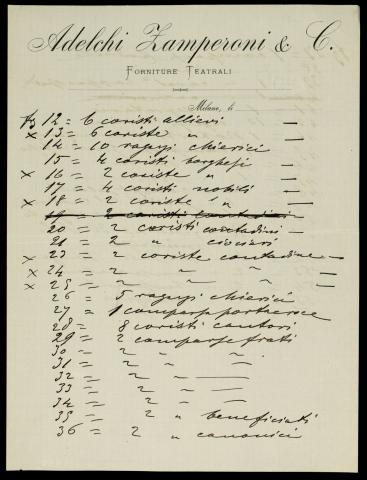 Adelchi Zamperoni & C.
Forniture Teatrali
Milano, li
12 = 6 coristi allievi —
x 13 = 6 coriste " —
14 = 10 ragazzi chierici
15 = 4 coristi borghesi —
x 16 = 2 coriste " —
17 = 4 coristi nobili —
x 18 = 2 coriste " —
19 = 2 coristi contadini
20 = 2 coristi contadini —
21 = 2 " ciociari
x 23 = 2 coriste contadine —
x 24 = 2 " " —
x 25 = 2 " " —
26 = 5 ragazzi chierici
27 = 1 comparsa portacroce
28 = 8 coristi cantori
29 = 2 comparse frati
30 = 2 " "
31 = 2 " "
32 = 2 —
33 = 2 —
34 = 2 —
35 = 2 " beneficiati
36 = 2 " canonici